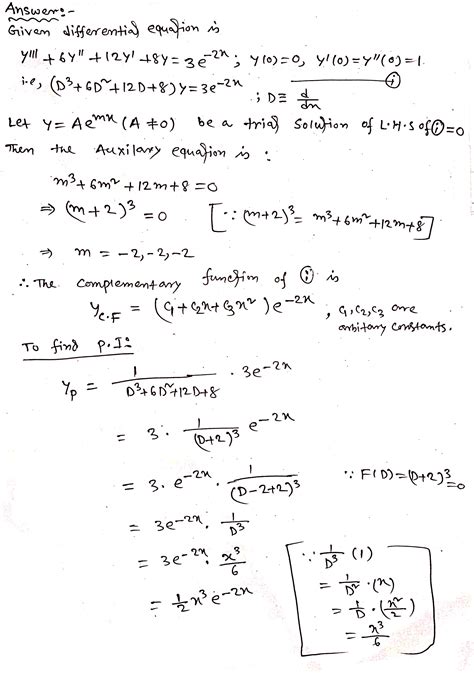 Answer:-
Given differential equation is
y''' + 6y'' + 12y' + 8y = 3e^{-2x} ; y(0)=0, y'(0)=y''(0)=1.
i.e, (D³+6D²+12D+8)y = 3e^{-2x} ——— (i)
; D ≡ d/dx
Let y = Ae^{mx} (A ≠ 0) be a trial solution of L.H.S of (i) = 0
Then the Auxilary equation is :
m³+6m²+12m+8 = 0
⇒ (m+2)³ = 0 [∵ (m+2)³ = m³+6m²+12m+8]
⇒ m = -2, -2, -2
∴ The complementary function of (i) is
y_{C.F} = (c₁+c₂x+c₃x²)e^{-2x} , c₁,c₂,c₃ are
arbitary constants.
To find P.I:
y_p = 1/(D³+6D²+12D+8) · 3e^{-2x}
= 3 · 1/(D+2)³ e^{-2x}
= 3 · e^{-2x} · 1/(D-2+2)³ ∵ F(D) = (D+2)³ = 0
= 3e^{-2x} · 1/D³
= 3e^{-2x} · x³/6
= 1/2 x³ e^{-2x}
[∵ 1/D³ (1)
= 1/D² · (x)
= 1/D · (x²/2)
= x³/6]